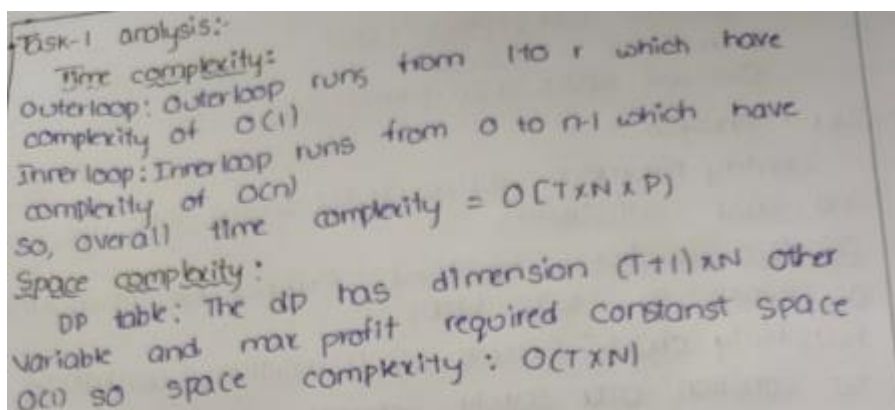 Task-1 analysis:-
Time complexity:
Outerloop: Outerloop runs from 1 to r which have
complexity of O(1)
Inner loop: Innerloop runs from 0 to n-1 which have
complexity of O(n)
so, overall time complexity = O(T×N×P)
Space complexity:
DP table: The dp has dimension (T+1)×N other
variable and max profit required constanst space
O(1) so space complexity: O(T×N)